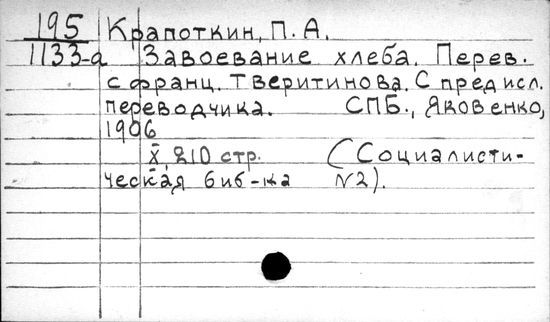 195 Крапоткин, П. А.
1133-а Завоевание хлеба. Перев.
с франц. Тверитинова. С предисл.
переводчика. СПБ., Яковенко,
1906
X, 210 стр. (Социалисти-
ческая биб-ка N2).